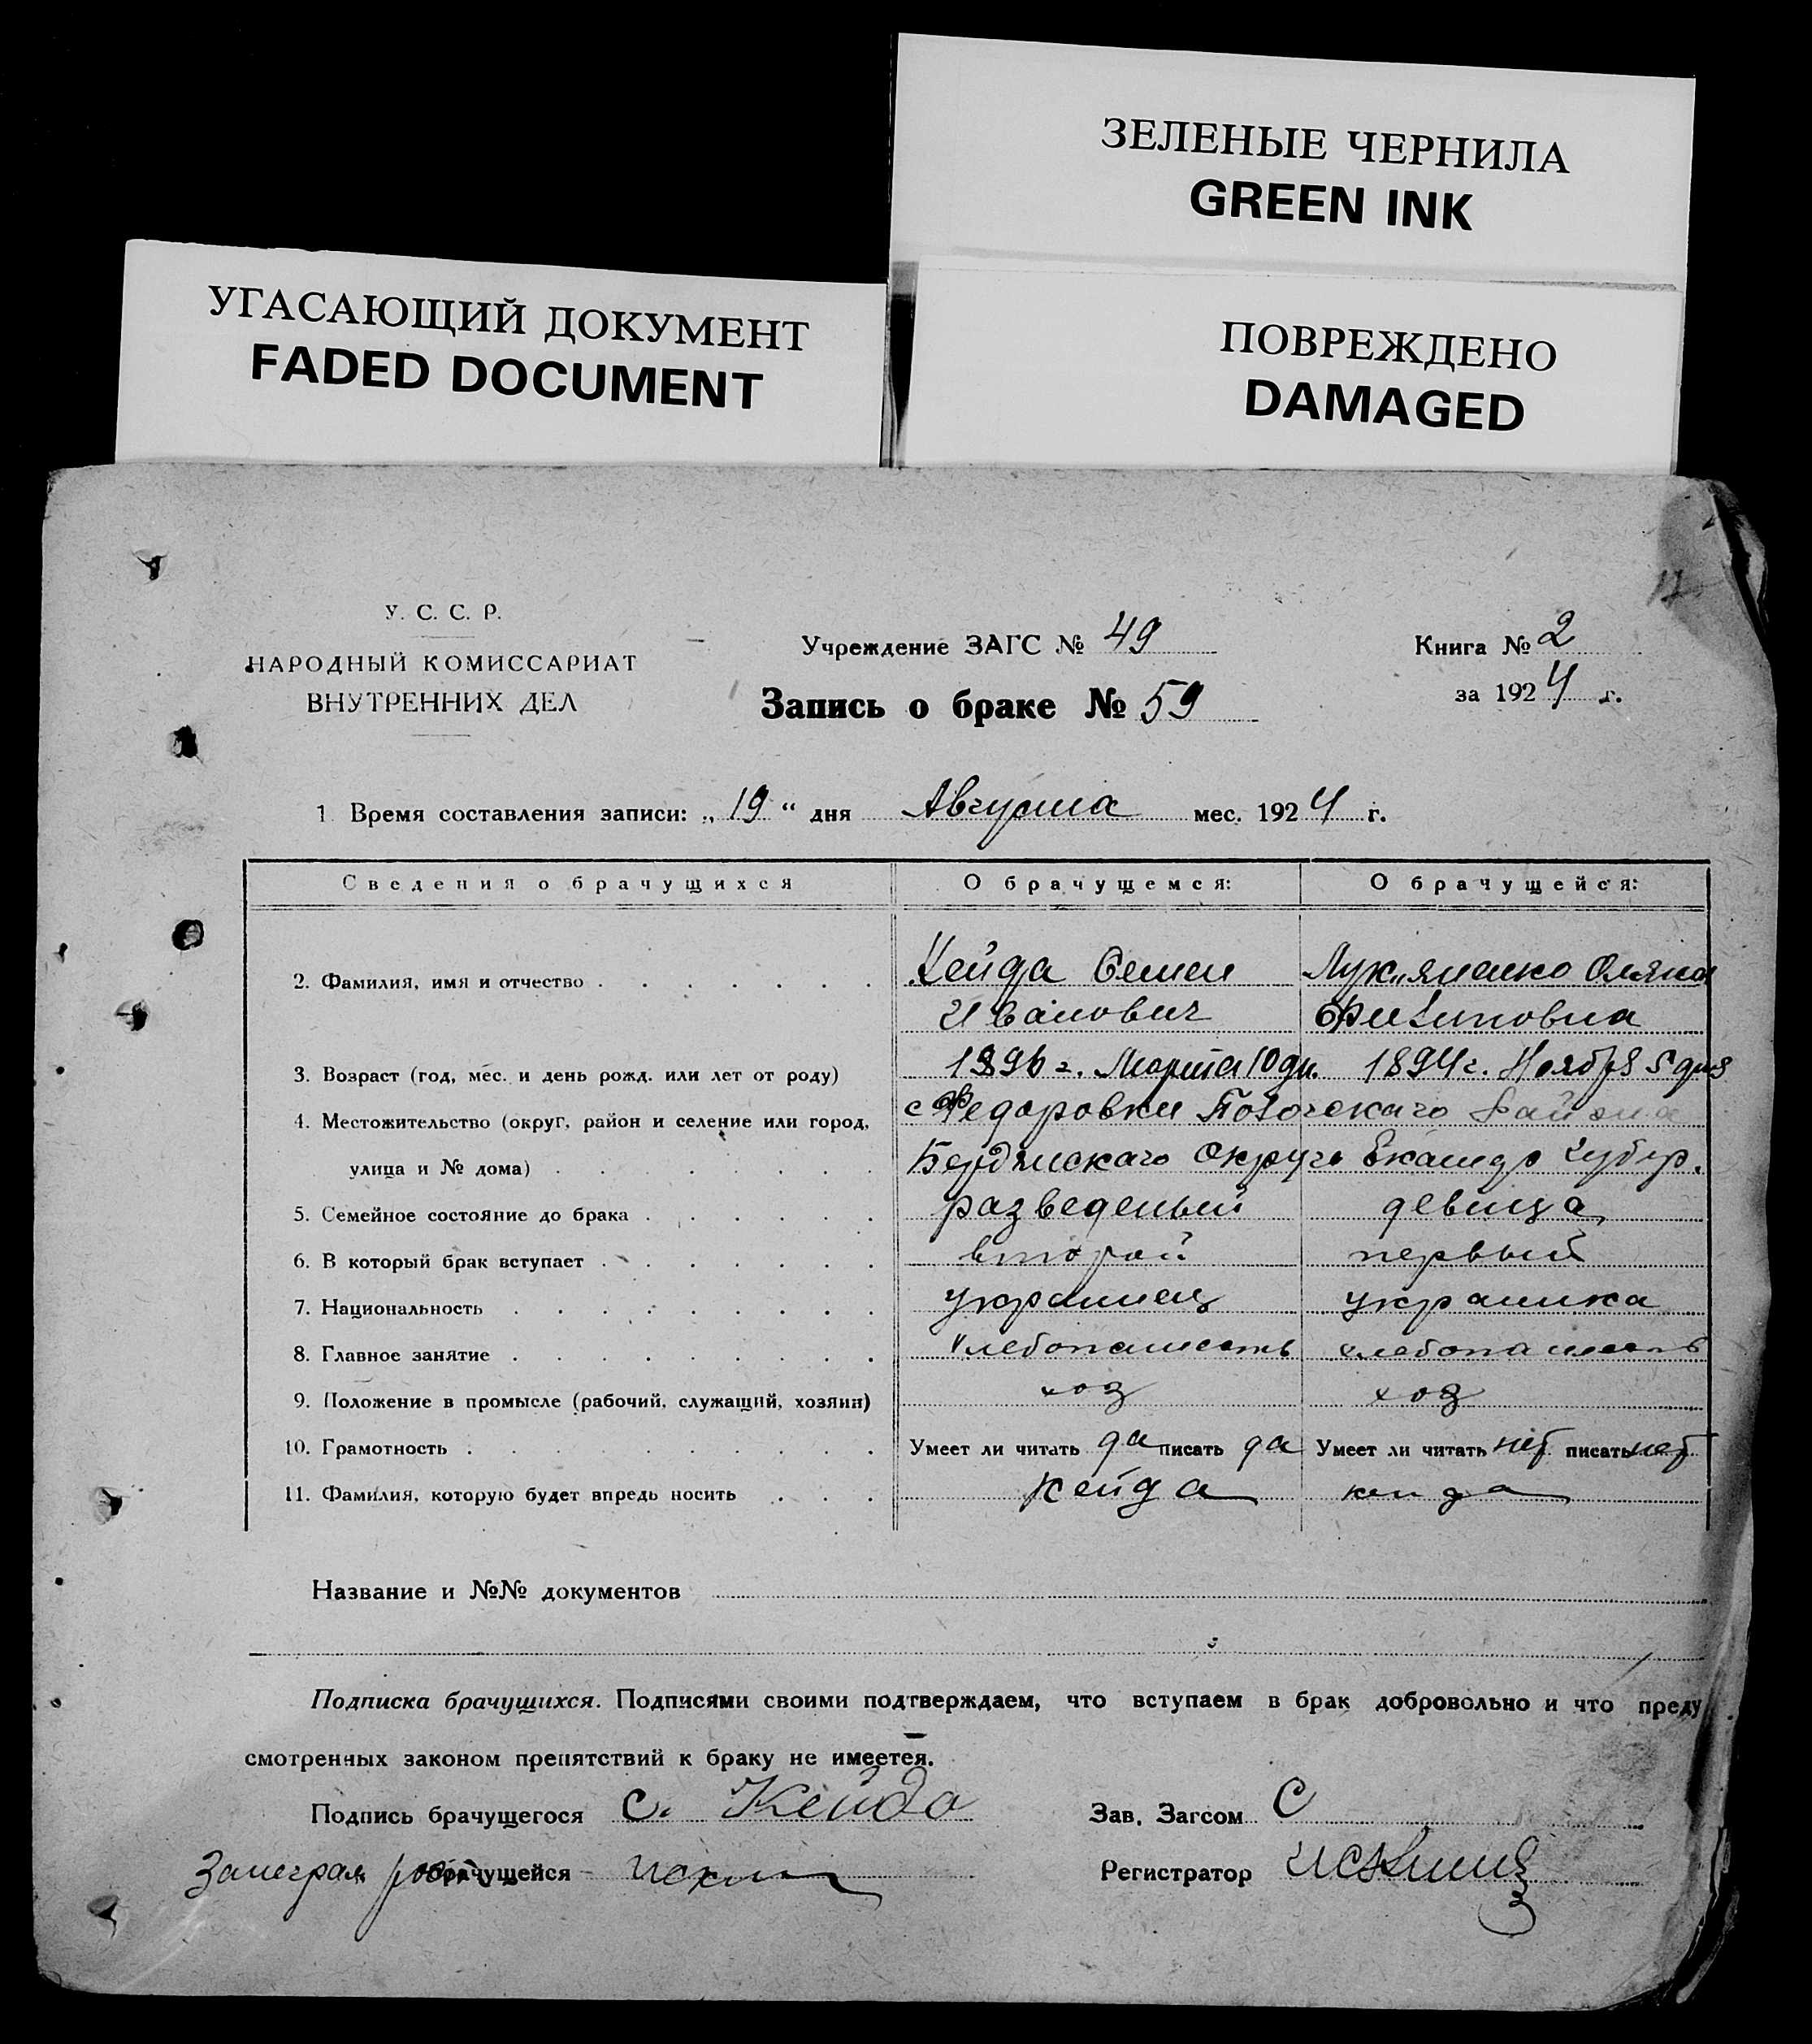 ЗЕЛЕНЫЕ ЧЕРНИЛА
GREEN INK
УГАСАЮЩИЙ ДОКУМЕНТ
FADED DOCUMENT
ПОВРЕЖДЕНО
DAMAGED
17
У. С. С. Р.
НАРОДНЫЙ КОМИССАРИАТ
ВНУТРЕННИХ ДЕЛ
Учреждение ЗАГС № 49
Запись о браке № 59
Книга № 2
за 1924 г.
1 Время составления записи: „19“ дня Августа мес. 1924 г.
Сведения о брачущихся О брачущемся: О брачущейся:
2. Фамилия, имя и отчество Кейда Семен Лук"яненко
Иванович Филиповна
3. Возраст (год, мес. и день рожд. или лет от роду) 1896 г. Марта 10 дн. 1894 г. Ноября 5 дня
4. Местожительство (округ, район и селение или город, с Федоровки района
улица и № дома) Бердянскаго Округа Губер.
5. Семейное состояние до брака разведеный девица
6. В который брак вступает второй первый
7. Национальность украинец украинка
8. Главное занятие хлебопашесть хлебопашесть
9. Положение в промысле (рабочий, служащий, хозяин) хоз хоз
10. Грамотность Умеет ли читать да писать да Умеет ли читать нет писать нет
11. Фамилия, которую будет впредь носить Кейда кейда
Название и №№ документов
Подписка брачущихся. Подписями своими подтверждаем, что вступаем в брак добровольно и что преду
смотренных законом препятствий к браку не имеется.
Подпись брачущегося С. Кейда Зав. Загсом С
брачущейся Регистратор